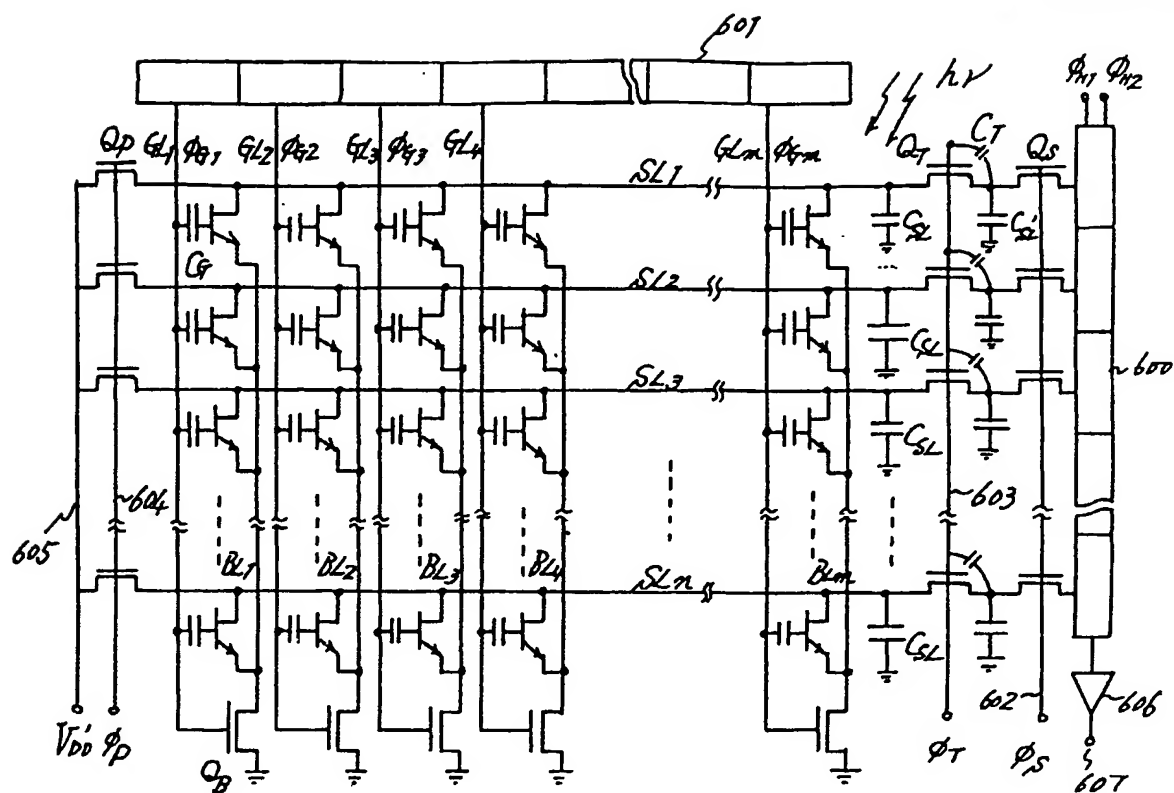 601
hν
φH1 φH2
QP GL1 φG1 GL2 φG2 GL3 φG3 GL4 GLm φGm QT CT QS
SL1
CSL CSL'
CG
SL2
CSL
SL3
600
CSL
604 603
605
BL1 BL2 BL3 BL4 SLn BLm
CSL
602 606
VDD' φP QB φT φS
607